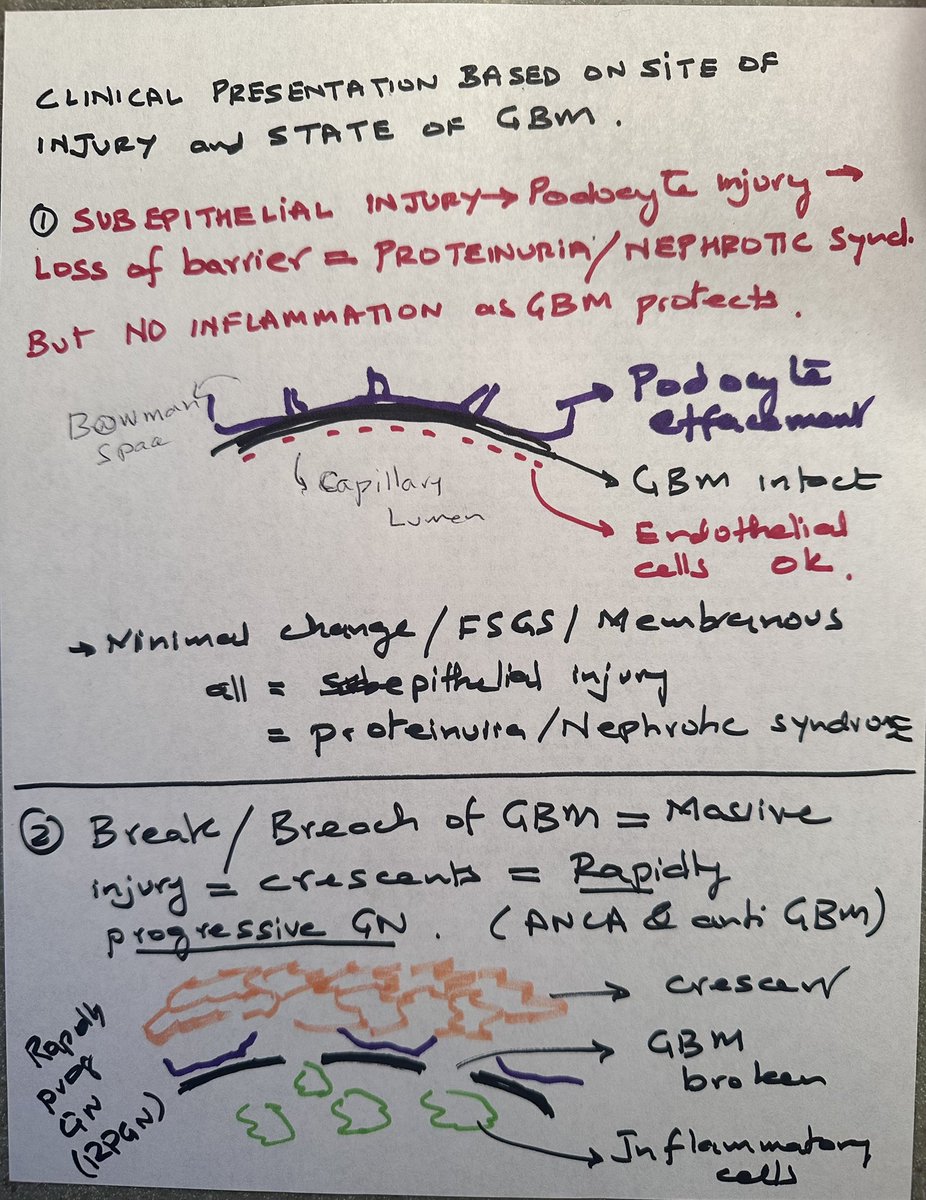 CLINICAL PRESENTATION BASED ON SITE OF
INJURY and STATE OF GBM.
① SUBEPITHELIAL INJURY → Podocyte injury →
Loss of barrier = PROTEINURIA/NEPHROTIC Synd.
But NO INFLAMMATION as GBM protects.
Bowman
Space
Podocyte
effacement
GBM intact
Capillary
Lumen
Endothelial
cells ok.
→ Minimal change/FSGS/Membranous
all = epithelial injury
= proteinuira/Nephrotic syndrome
② Break/Breach of GBM = Massive
injury = crescents = Rapidly
progressive GN. (ANCA & anti GBM)
Crescent
GBM
broken
Rapidly
prog
GN
(RPGN)
Inflammatory
cells